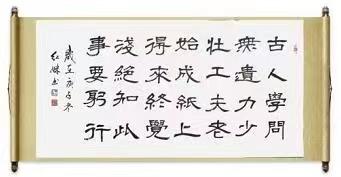 古人學問
無遺力少
壯工夫老
始成紙上
得來終覺
淺絕知此
事要躬行
歲在庚子冬